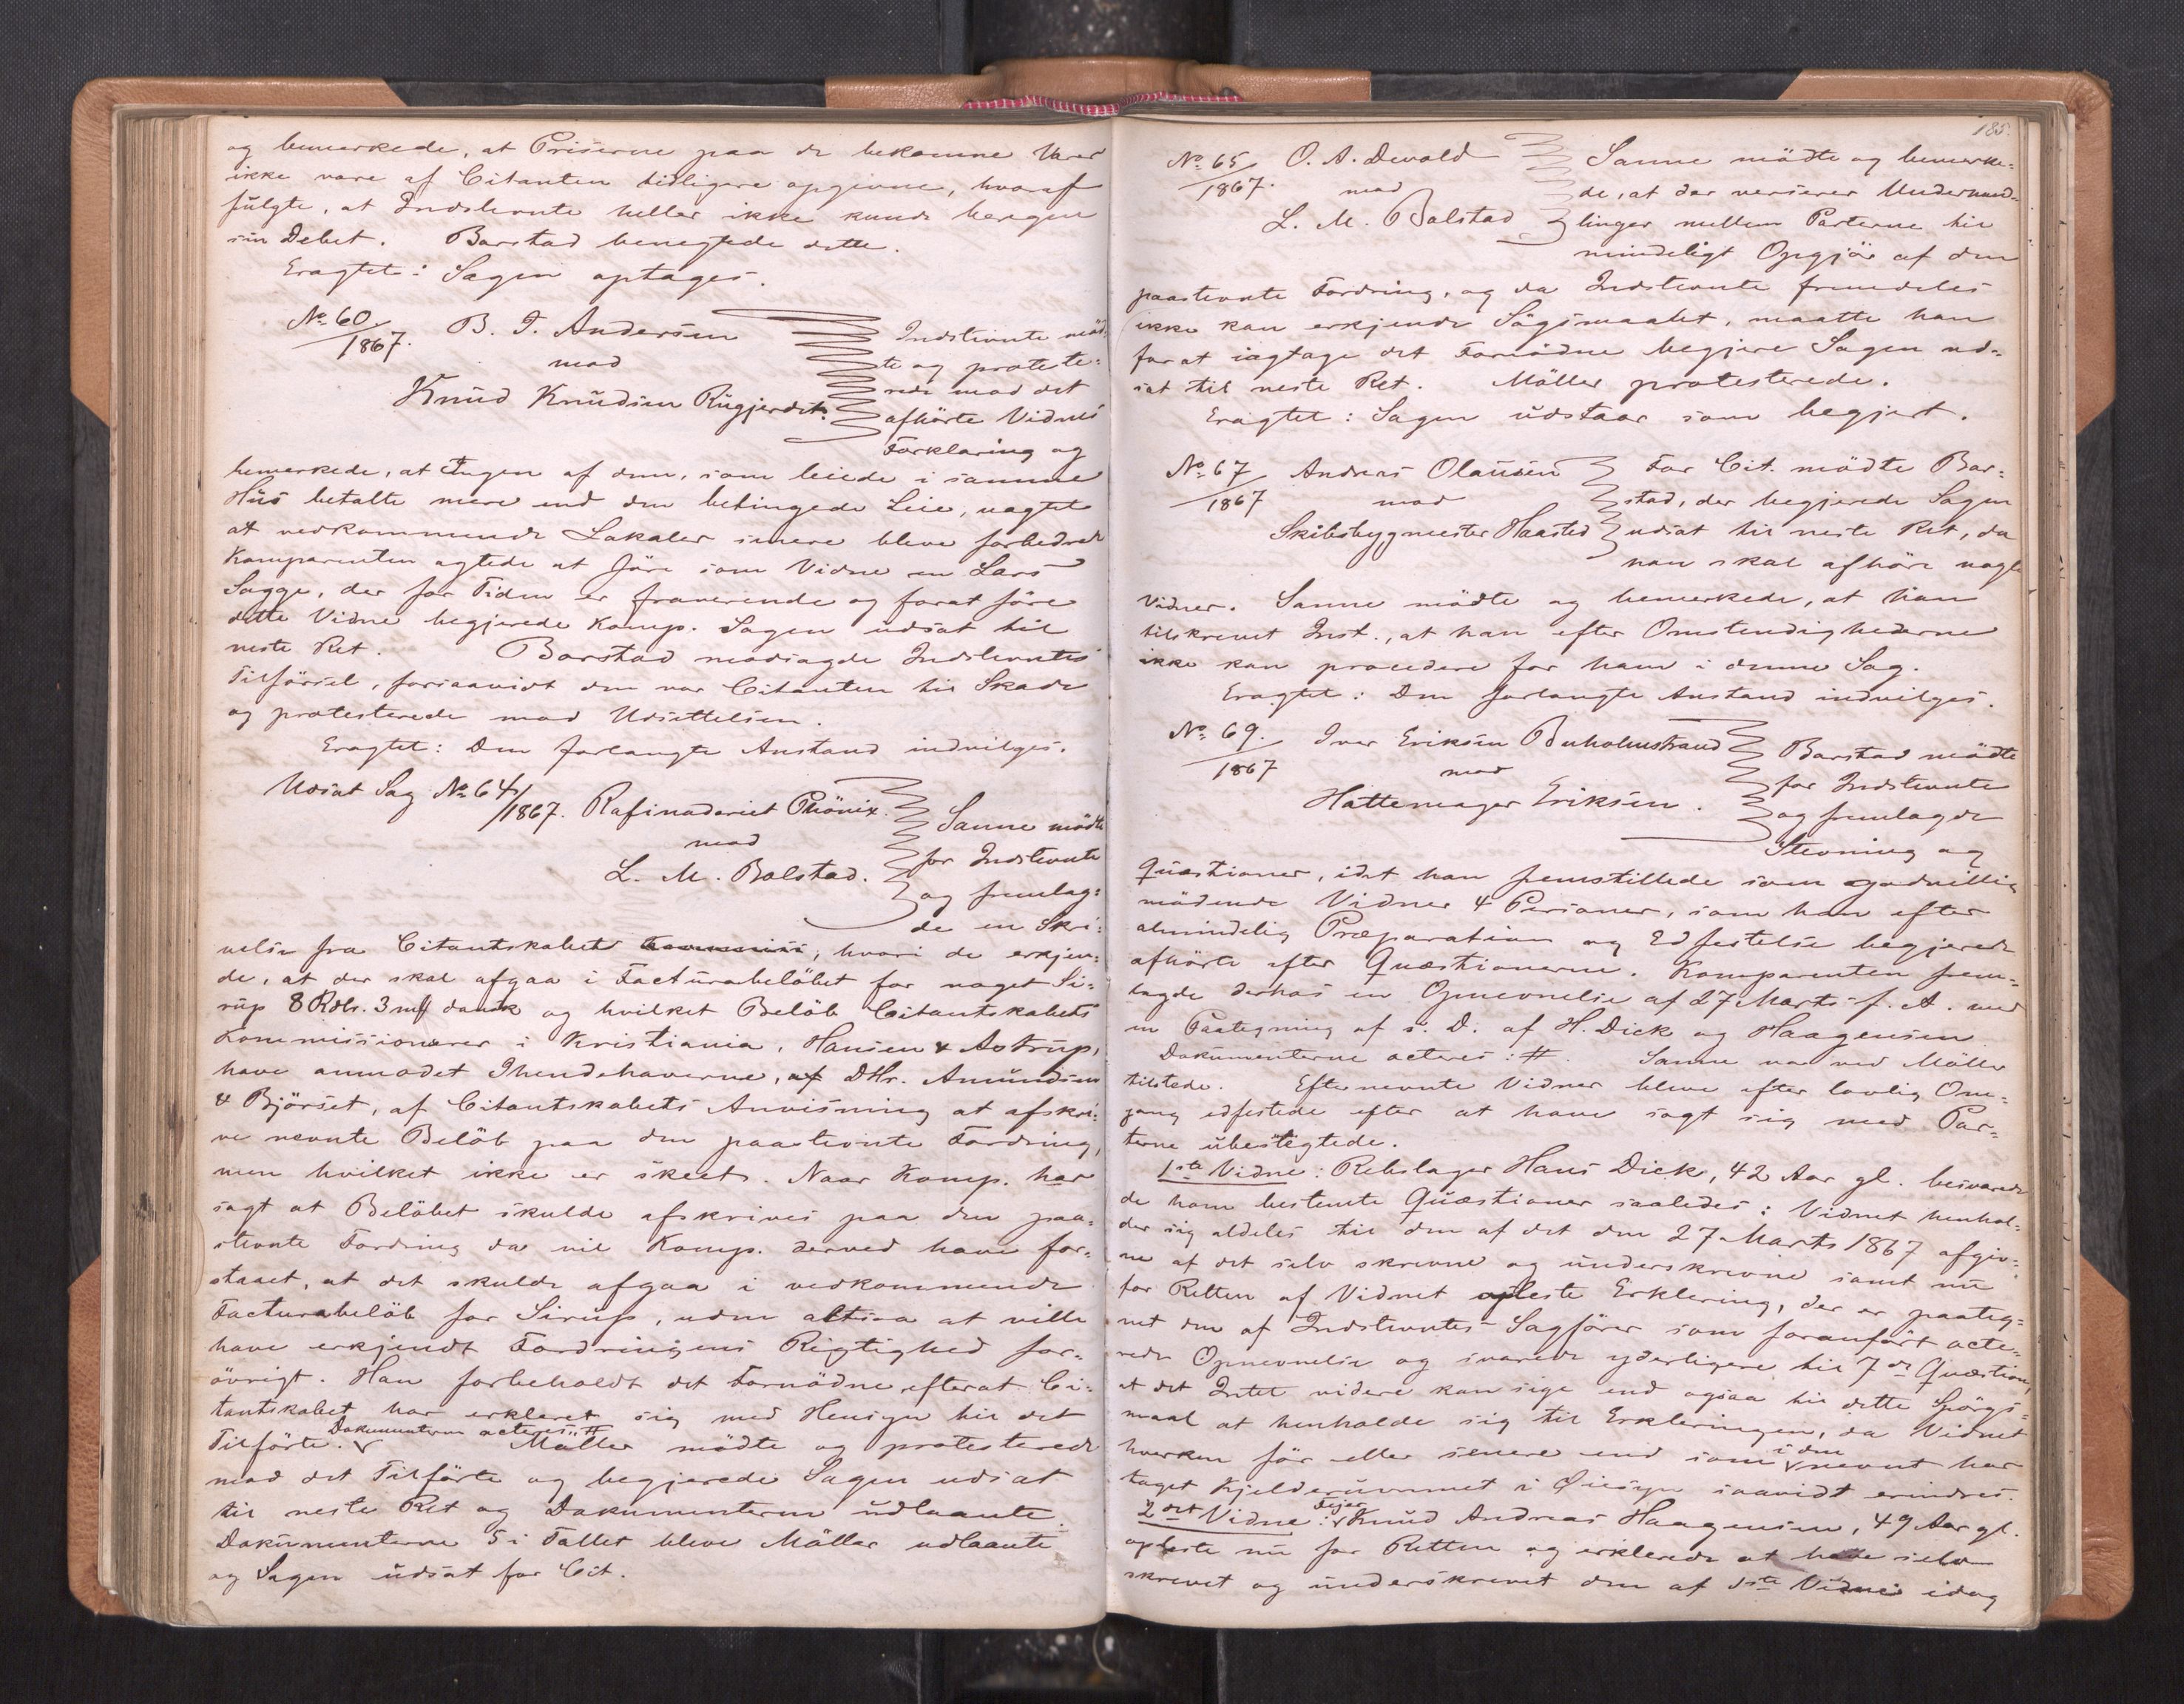 og bemerkede, at Priserne paa de bekomne Varer
ikke vare af Citanten tidligere opgivne, hvoraf
fulgte, at Indstevnte heller ikke kunde beregne
sin Debet. Barstad benegtede dette.
Eragtet: Sagen optages.
No 60/1867. B. T. Andersen
mod
Knud Knudsen Rugjerdet.
Indstevnte möd-
te og proteste-
rede mod det
afhörte Vidnes
Forklaring og
bemerkede, at Ingen af dem, som leiede i samme
Hus betalte mere end den betingede Leie, uagtet
at vedkommende Lokaler senere bleve forbedrede
Komparenten agtede at före som Vidne en Lars
Sagge, der for Tiden er fraverende og forat före
dette Vidne begjerede Komp. Sagen udsat til
neste Ret. Barstad modsagde Indstevntes
Tilförsel, forsaavidt den var Citanten til Skade
og protesterede mod Udsettelsen.
Eragtet: Den forlangte Anstand indvilges.
Udsat Sag No 64/1867. Rafinaderiet Phönix
mod
L. M. Bolstad.
Sanne mödte
for Indstevnte
og fremlag-
de en Skri-
velse fra Citantskabet, hvori de erkjen-
de, at der skal afgaa i Facturabelöbet for noget Si-
rup 8 Rdlr. 3 mk dansk og hvilket Belöb Citantskabets
Kommissionærer i Kristiania, Hansen & Astrup,
have anmodet Ihendehaverne, af DHr. Amundsen
& Björset, af Citantskabets Anvisning at afskri-
ve nevnte Belöb paa den paastevnte Fordring,
men hvilket ikke er skeet. Naar Komp. har
sagt at Belöbet skulde afskrives paa den paa-
stevnte Fordring da vil Komp. derved have for-
staaet, at det skulde afgaa i vedkommende
Facturabelöb for Sirup, uden altsaa at ville
have erkjendt Fordringens Rigtighed for-
övrigt. Han forbeholdt det Fornödne efterat Ci-
tantskabet har erkleret sig med Hensyn til det
Dokumenterne acteres: #
Tilförte. Möller mödte og protesterede
mod det Tilförte og begjerede Sagen udsat
til neste Ret og Dokumenterne udlaante.
Dokumenterne 5 i Tallet bleve Möller udlaante
og Sagen udsat for Cit.
185.
No 65/1867. O. A. Devold
mod
L. M. Bolstad
Sanne mödte og bemerke-
de, at der verserer Underhand-
linger mellem Parterne til
mindeligt Opgjör af den
paastevnte Fordring, og da Indstevnte fremdeles
ikke kan erkjende Sögsmaalet, maatte han
forat iagtage det Fornödne begjere Sagen ud-
sat til neste Ret. Möller protesterede.
Eragtet: Sagen udstaar som begjert.
No 67/1867 Andreas Olausen
mod
Skibsbygmester Haasted
For Cit. mödte Bar-
stad, der begjerede Sagen
udsat til neste Ret, da
han skal afhöre nogle
Vidner. Sanne mödte og bemerkede, at han
tilskrevet Inst., at han efter Omstendighederne
ikke kan procedere for ham i denne Sag.
Eragtet: Den forlangte Anstand indvilges.
No 69./1867 Iver Eriksen Buholmstrand
mod
Hattemager Eriksen.
Barstad mödte
for Indstevnte
og fremlagde
Stevning og
Quæstioner, idet han fremstillede som godvillig
mödende Vidner 4 Personer, som han efter
almindelig Præparation og Edfestelse begjerede
afhörte efter Quæstionerne. Komparenten frem-
lagde derhos en Opnevnelse af 27 Marts f. A. med
en Paategning af s. D. af H. Dick og Haagensen
Dokumenterne acteres: #. Sanne var ved Möller
tilstede. Efternevnte Vidner bleve efter lovlig Om-
gang edfestede efter at have sagt sig med Par-
terne ubeslegtede.
1ste Vidne: Rebslager Hans Dick, 42 Aar gl. besvarede
de ham bestemte Quæstioner saaledes: Vidnet henhol-
der sig aldeles til den af det den 27 Marts 1867 afgiv-
ne af det selv skrevne og underskrevne samt nu
for Retten af Vidnet opleste Erklering, der er paateg-
net den af Indstevntes Sagförer som foranfört acte-
rede Opnevnelse og svarede yderligere til 7de Quæstion,
at det Intet videre kan sige end ogsaa til dette Spörgs-
maal at henholde sig til Erkleringen, da Vidnet
hverken för eller senere end som i den nevnt har
taget Kjelderrummet i Öiesyn saavidt erindres.
2det Vidne: Fejer Knud Andreas Haagensen, 49 Aar gl.
opleste nu for Retten og erklerede at have selv
skrevet og underskrevet den af 1ste Vidne idag